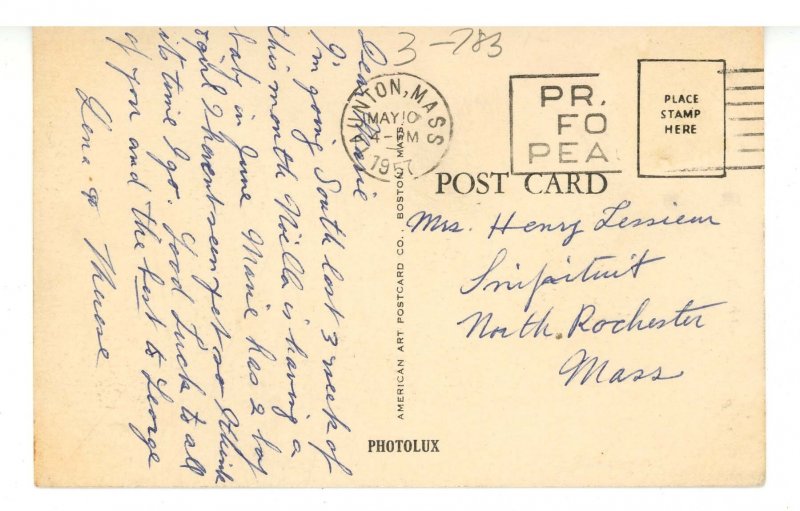 3-783
Dear Marie
I'm going South last 3 week of
this month Noella is having a
baby in June Marie has 2 boy
& girl I havent seen yet so I think
its time I go. Good Luck to all
of you and the best to George
Lena &
UNTON, MASS
MAY 10
4 - PM
1957
PR.
FO
PEA
PLACE
STAMP
HERE
POST CARD
Mrs. Henry Lessieur
Snipatuit
North Rochester
Mass
AMERICAN ART POSTCARD CO., BOSTON, MASS.
PHOTOLUX